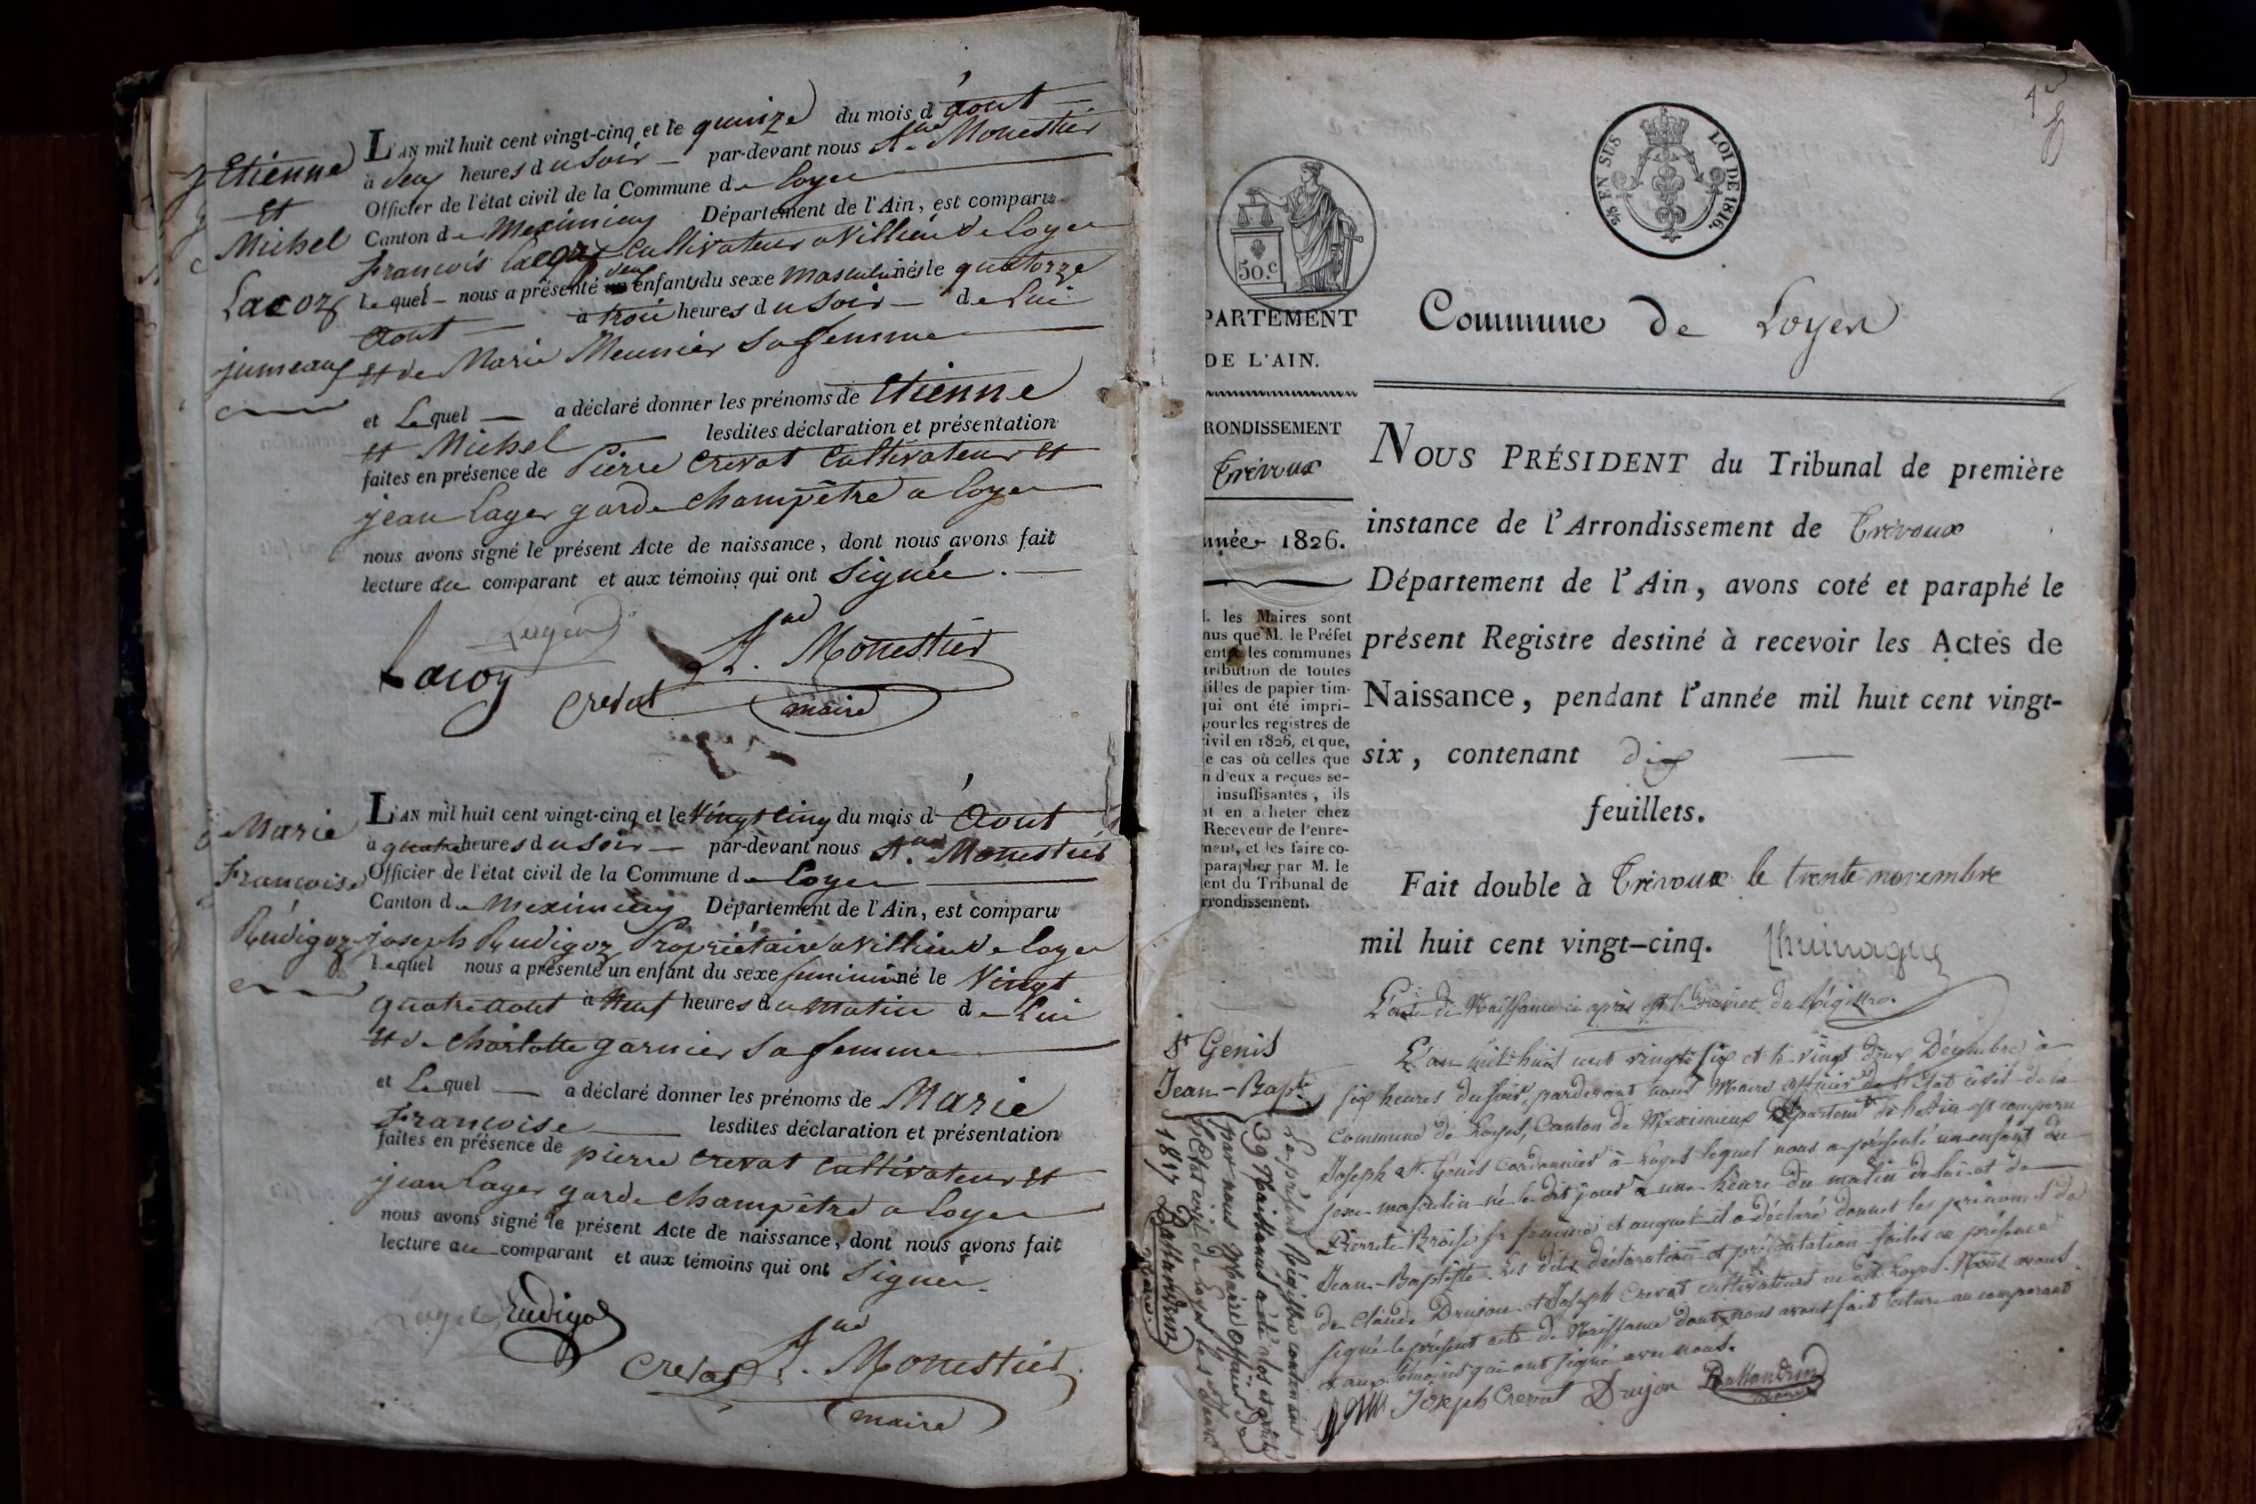 Etienne
et
Michel
Lacoz
jumeaux
L'AN mil huit cent vingt-cinq et le quinze du mois d'aout
à deux heures du soir par-devant nous Monestier
Officier de l'état civil de la Commune de Loyes
Canton de Meximieux Département de l'Ain, est comparu
françois Lacoz Cultivateur a Villieu de Loyes
lequel nous a présenté deux enfants du sexe masculin nés le quatorze
aout à trois heures du soir de Lui
et de Marie Meunier Sa femme
et Lequel a déclaré donner les prénoms de Etienne
et Michel lesdites déclaration et présentation
faites en présence de Pierre Crevat Cultivateur et
jean Lager garde Champêtre a Loyes
nous avons signé le présent Acte de naissance, dont nous avons fait
lecture au comparant et aux témoins qui ont Signée.
Lager
Lacoz Crevat Monestier
maire
Marie
françoise
Rudigoz
L'AN mil huit cent vingt-cinq et le Vingt Cinq du mois d'Aout
à quatre heures du soir par-devant nous Monestier
Officier de l'état civil de la Commune de Loyes
Canton de Meximieux Département de l'Ain, est comparu
joseph Rudigoz Propriétaire a Villieu de Loyes
lequel nous a présenté un enfant du sexe feminin né le Vingt
quatre aout à Neuf heures du matin de Lui
et de Charlotte garnier Sa femme
et Lequel a déclaré donner les prénoms de Marie
françoise lesdites déclaration et présentation
faites en présence de pierre Crevat Cultivateur et
jean Lager garde Champêtre a Loyes
nous avons signé le présent Acte de naissance, dont nous avons fait
lecture au comparant et aux témoins qui ont Signer.
Crevat Monestier
maire
50.c
EN SUS LOI DE 1816.
PARTEMENT
DE L'AIN.
RONDISSEMENT
Trévoux
nnée 1826.
l. les Maires sont
nus que M. le Préfet
entre les communes
tribution de toutes
uilles de papier tim-
qui ont été impri-
pour les registres de
civil en 1826, et que,
e cas où celles que
n d'eux a reçues se-
insuffisantes, ils
nt en acheter chez
Receveur de l'enre-
ment, et les faire co-
parapher par M. le
ent du Tribunal de
rrondissement.
Commune de Loyes
NOUS PRÉSIDENT du Tribunal de première
instance de l'Arrondissement de Trévoux
Département de l'Ain, avons coté et paraphé le
présent Registre destiné à recevoir les Actes de
Naissance, pendant l'année mil huit cent vingt-
six, contenant dix
feuillets.
Fait double à Trévoux le trente novembre
mil huit cent vingt-cinq.
L'acte de Naissance ci après est le dernier du Régistre.
St Genis
Jean-Bapte
L'an mil huit cent vingt six et le vingt deux Décembre à
six heures du soir, pardevant nous Maire officier de l'Etat civil de la
commune de Loyes, Canton de Meximieux Département de l'Ain est comparu
Joseph St. Genis Cordonnier à Loyes lequel nous a présenté un enfant du
sexe masculin né le dit jour à une heure du matin de lui et de
Pierrette Broise sa femme et auquel il a déclaré donner les prénoms de
Jean-Baptiste. Les dites déclaration et présentation faites en présence
de Claude Drujon et Joseph Crevat cultivateurs Loyes. Nous avons
signé le présent acte de Naissance dont nous avons fait lecture au comparant
et aux témoins qui ont signé avec nous.
Joseph Crevat Drujon Ballandrin
Maire
Le présent Régistre contenant
39 Naissances a été clos et arrêté
par nous Maire officier de
l'Etat civil de Loyes
Ballandrin
Maire.